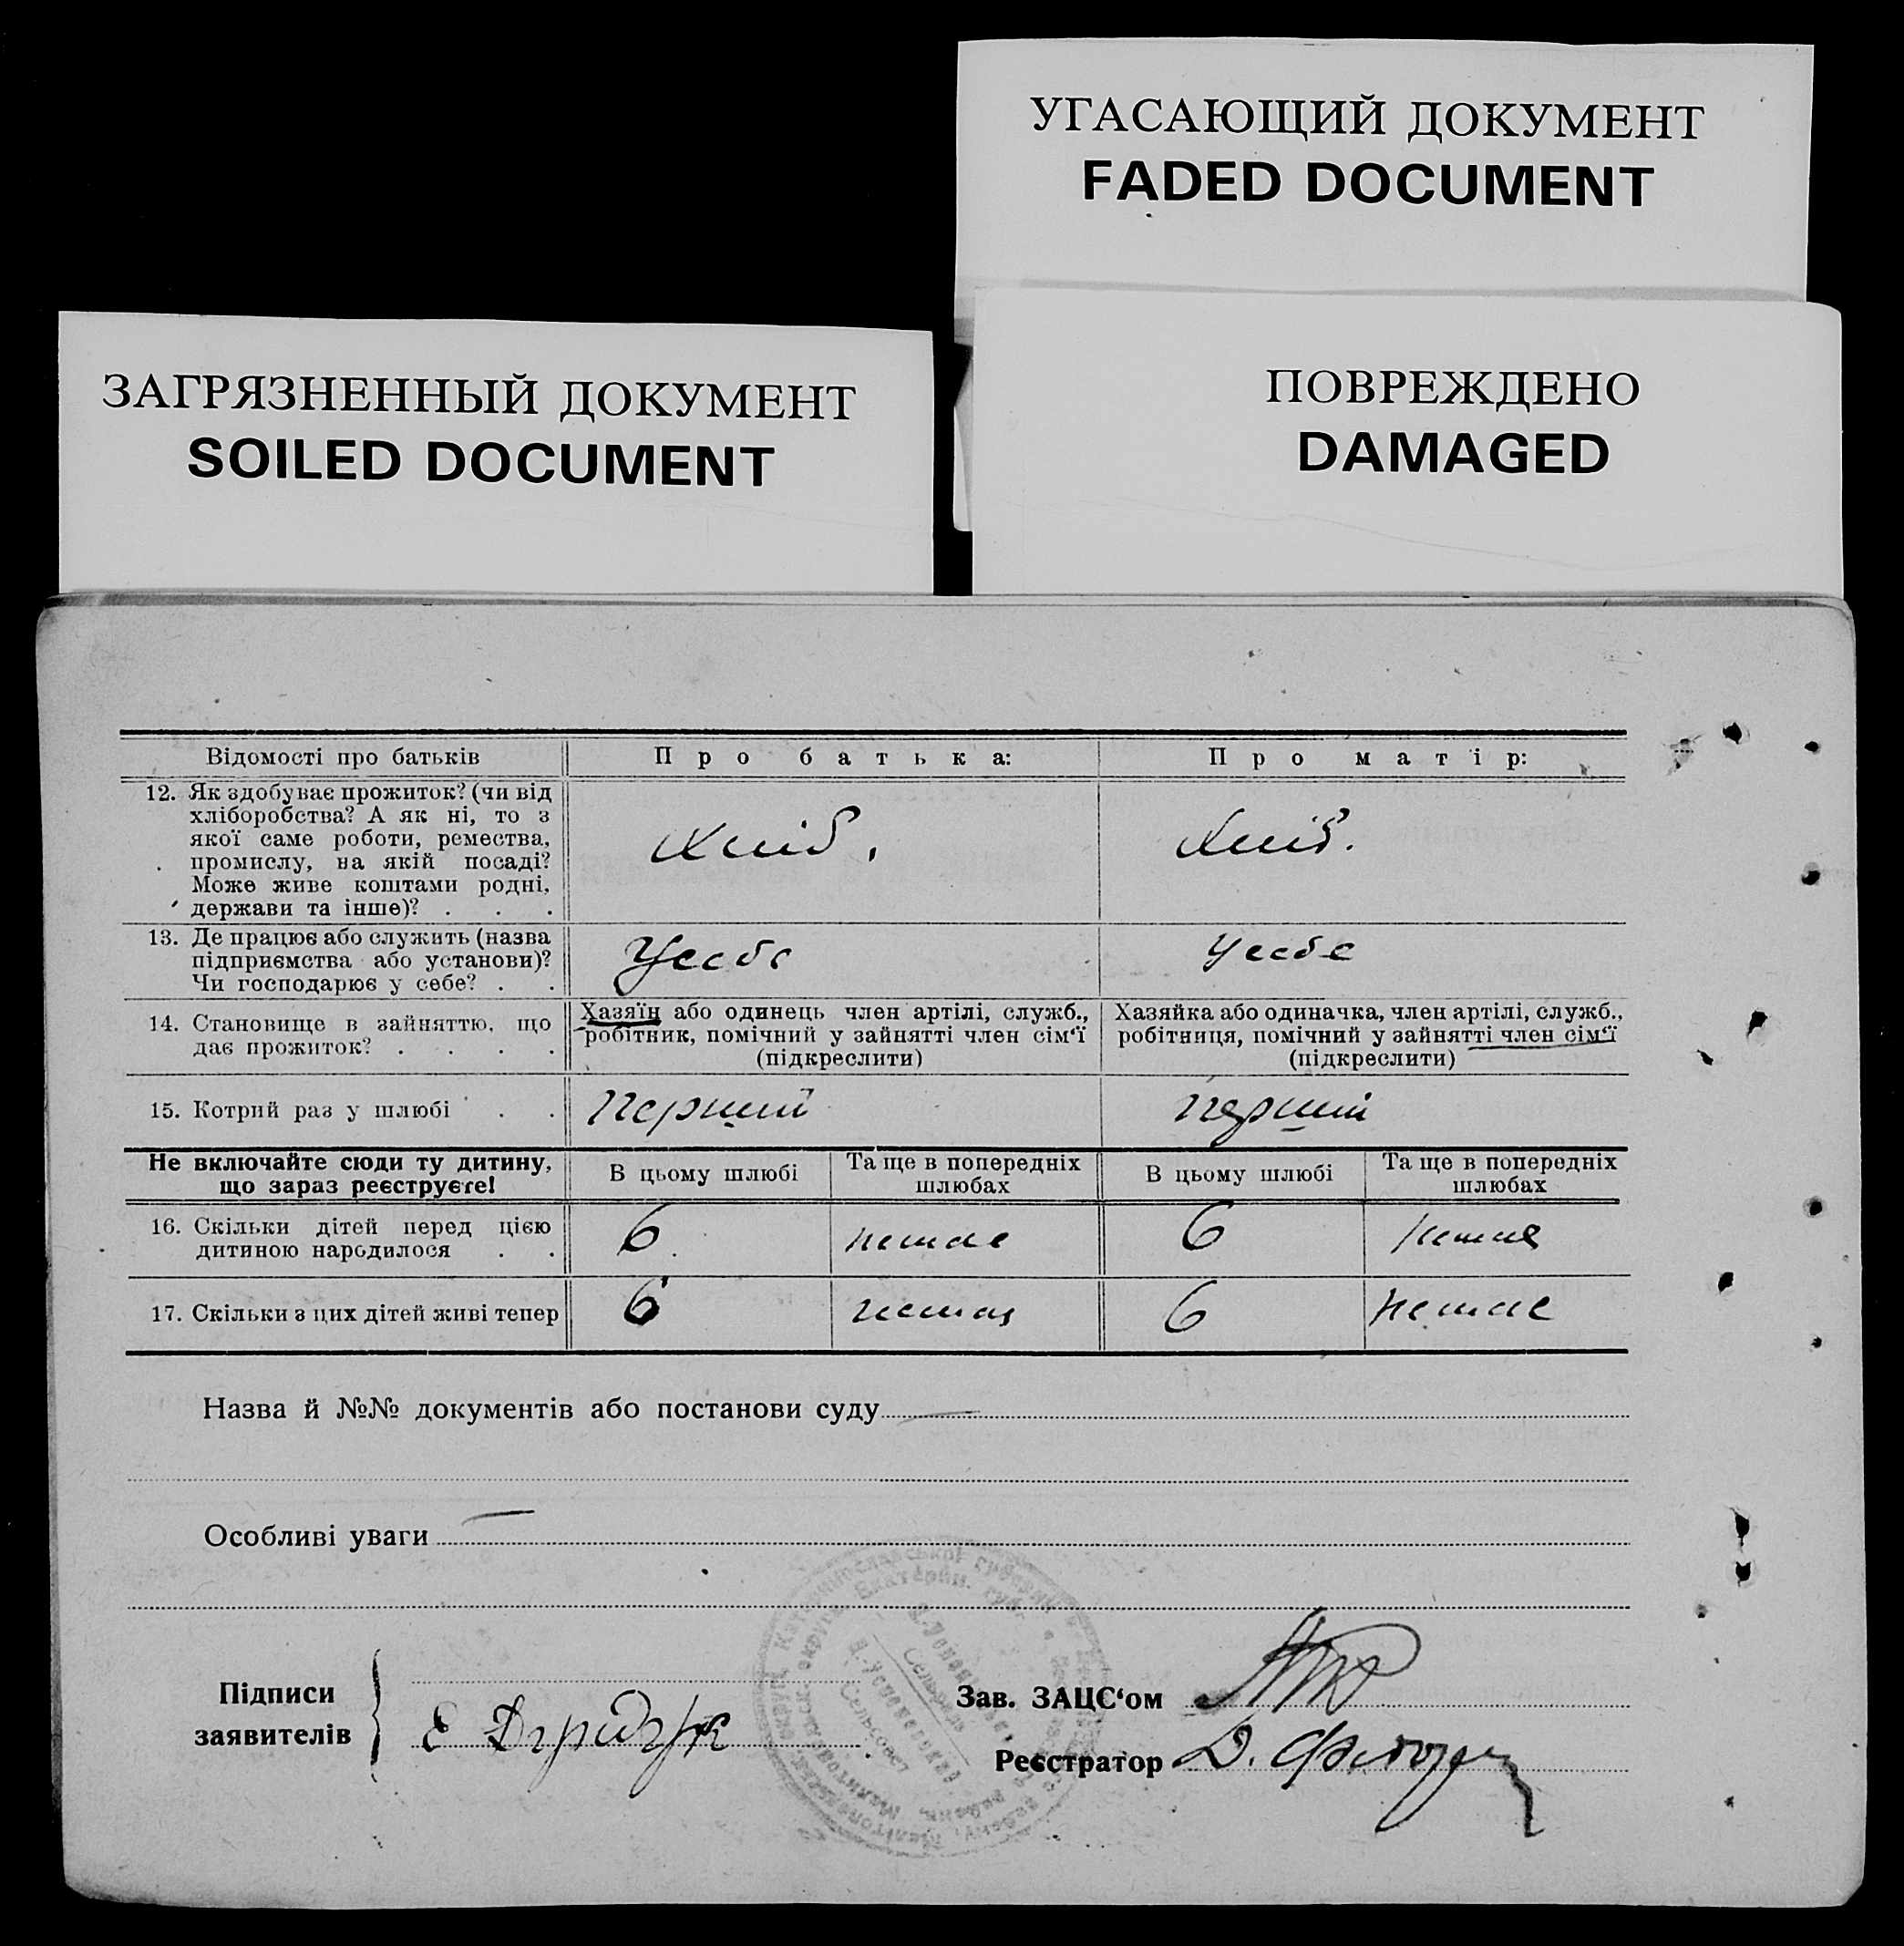 УГАСАЮЩИЙ ДОКУМЕНТ
FADED DOCUMENT
ЗАГРЯЗНЕННЫЙ ДОКУМЕНТ
SOILED DOCUMENT
ПОВРЕЖДЕНО
DAMAGED
Відомості про батьків Про батька: Про матір:
12. Як здобуває прожиток? (чи від
хліборобства? А як ні, то з
якої саме роботи, ремества,
промислу, на якій посаді?
Може живе коштами родні,
держави та інше)? . . .
Хліб. Хліб.
13. Де працює або служить (назва
підприємства або установи)?
Чи господарює у себе? . .
Усебе Усебе
14. Становище в зайняттю, що
дає прожиток? . . . .
Хазяїн або одинець член артілі, служб.,
робітник, помічний у зайнятті член сім'ї
(підкреслити)
Хазяйка або одиначка, член артілі, служб.,
робітниця, помічний у зайнятті член сім'ї
(підкреслити)
15. Котрий раз у шлюбі . . Перший Перший
Не включайте сюди ту дитину,
що зараз реєструєте!
В цьому шлюбі Та ще в попередніх
шлюбах
В цьому шлюбі Та ще в попередніх
шлюбах
16. Скільки дітей перед цією
дитиною народилося . .
6 немае 6 немае
17. Скільки з цих дітей живі тепер 6 немае 6 немае
Назва й №№ документів або постанови суду
Особливі уваги
Підписи
заявителів
Е
Зав. ЗАЦС'ом
Реєстратор Д.